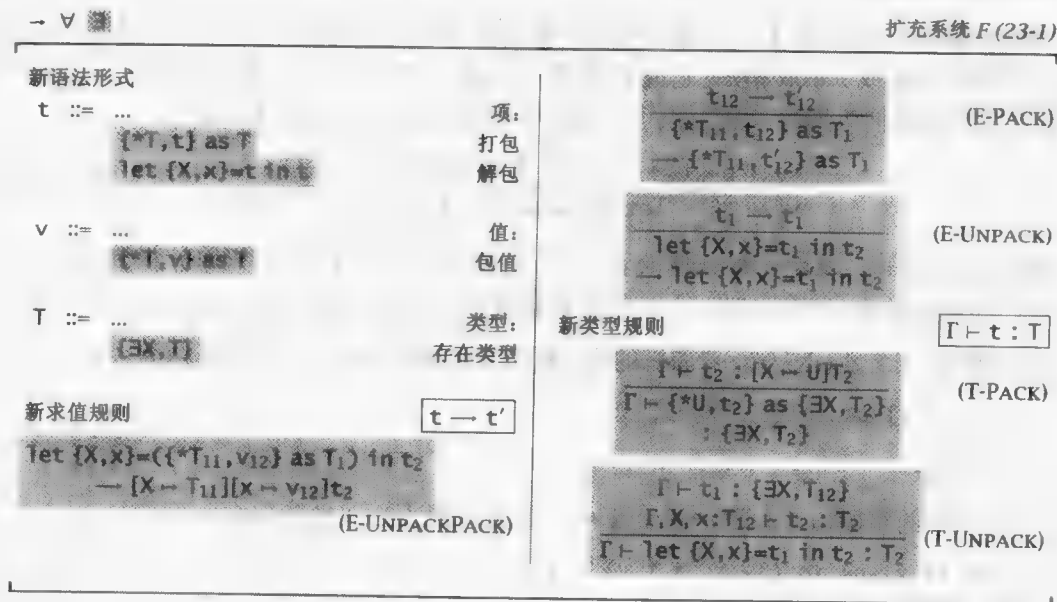 → ∀ ∃
扩充系统 F (23-1)
新语法形式
t ::= ... 项:
{*T,t} as T 打包
let {X,x}=t in t 解包
v ::= ... 值:
{*T,v} as T 包值
T ::= ... 类型:
{∃X,T} 存在类型
新求值规则 t → t′
let {X,x}=({*T11,v12} as T1) in t2
→ [X ↦ T11][x ↦ v12]t2
(E-UNPACKPACK)
t12 → t′12
{*T11,t12} as T1
→ {*T11,t′12} as T1
(E-PACK)
t1 → t′1
let {X,x}=t1 in t2
→ let {X,x}=t′1 in t2
(E-UNPACK)
新类型规则 Γ ⊢ t : T
Γ ⊢ t2 : [X ↦ U]T2
Γ ⊢ {*U,t2} as {∃X,T2}
: {∃X,T2}
(T-PACK)
Γ ⊢ t1 : {∃X,T12}
Γ, X, x:T12 ⊢ t2 : T2
Γ ⊢ let {X,x}=t1 in t2 : T2
(T-UNPACK)